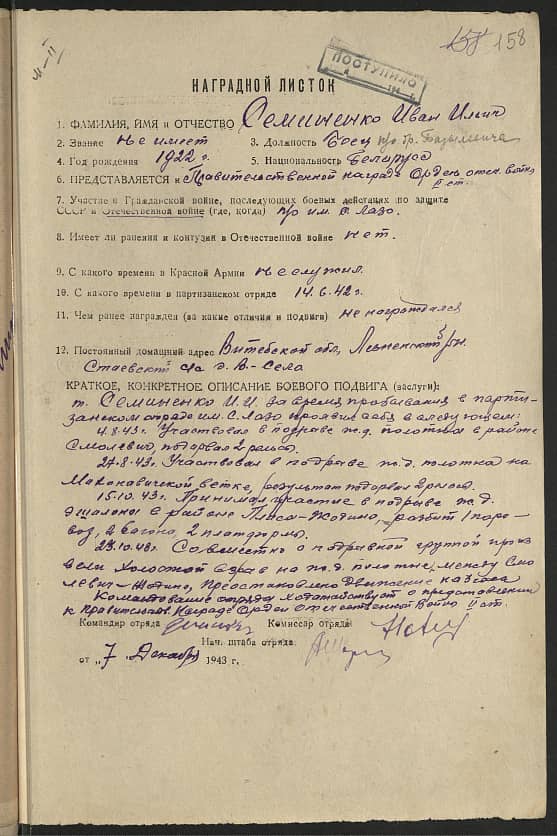 158
ПОСТУПИЛО
НАГРАДНОЙ ЛИСТОК
1. ФАМИЛИЯ, ИМЯ и ОТЧЕСТВО Семиненко Иван Ильич
2. Звание не имеет 3. Должность Боец п/о бр.
4. Год рождения 1922 г. 5. Национальность Беларус
6. ПРЕДСТАВЛЯЕТСЯ к Правительственной награде Орден отеч. войны
II ст.
7. Участие в Гражданской войне, последующих боевых действиях по защите
СССР и Отечественной войне (где, когда) п/о им. С. Лазо.
8. Имеет ли ранения и контузии в Отечественной войне нет.
9. С какого времени в Красной Армии не служил
10. С какого времени в партизанском отряде 14.6.42 г.
11. Чем ранее награжден (за какие отличия и подвиги) не награждался
12. Постоянный домашний адрес Витебской обл, р-н.
Стаевский с/с д. В-Села
КРАТКОЕ, КОНКРЕТНОЕ ОПИСАНИЕ БОЕВОГО ПОДВИГА (заслуги):
т. Семиненко И.И. за время пребывания в парти-
занском отряде им. С. Лазо проявил себя в следующем:
4.8.43 г. Участвовал в подрыве ж.д. полотна в районе
Смолевич, подорвал 2 рельсы.
27.8.43 г. Участвовал в подрыве ж.д. полотна на
ветке, результат подорвал 2 рельсы.
15.10.43 г. Принимал участие в подрыве ж.д.
эшалона в районе Плиса-Жодино, разбит 1 паро-
воз, 2 вагона, 2 платформы.
23.10.43 г. Совместно с подрывной группой произ
вели холостой взрыв на ж.д. полотне между Смо
левич-Жодино, Преостановлено движение на часа
Командование отряда ходатайствует о представлении
к правительств. Награде Орден Отечественной Войны II ст.
Командир отряда Комиссар отряда
Нач. штаба отряда
от „7 Декабря 1943 г.